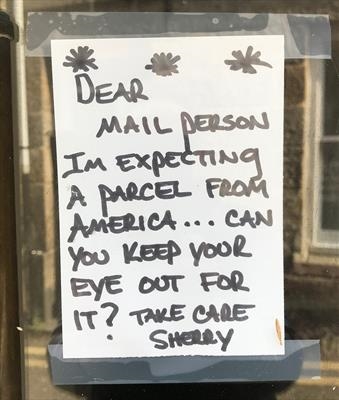 DEAR
MAIL PERSON
IM EXPECTING
A PARCEL FROM
AMERICA... CAN
YOU KEEP YOUR
EYE OUT FOR
IT? TAKE CARE
SHERRY